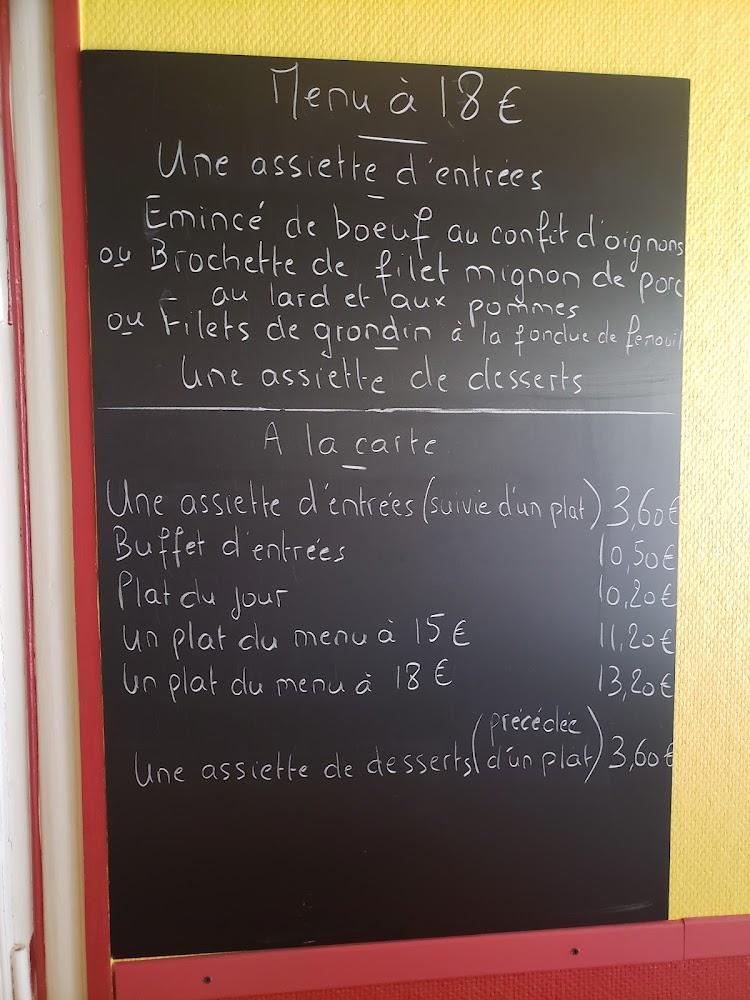 Menu à 18 €
Une assiette d'entrées
Emincé de boeuf au confit d'oignons
ou Brochette de filet mignon de porc
au lard et aux pommes
ou Filets de grondin à la fondue de fenouil
Une assiette de desserts
A la carte
Une assiette d'entrées (suivie d'un plat) 3,60 €
Buffet d'entrées 10,50 €
Plat du jour 10,20 €
un plat du menu à 15 € 11,20 €
un plat du menu à 18 € 13,20 €
Une assiette de desserts (précédée d'un plat) 3,60 €